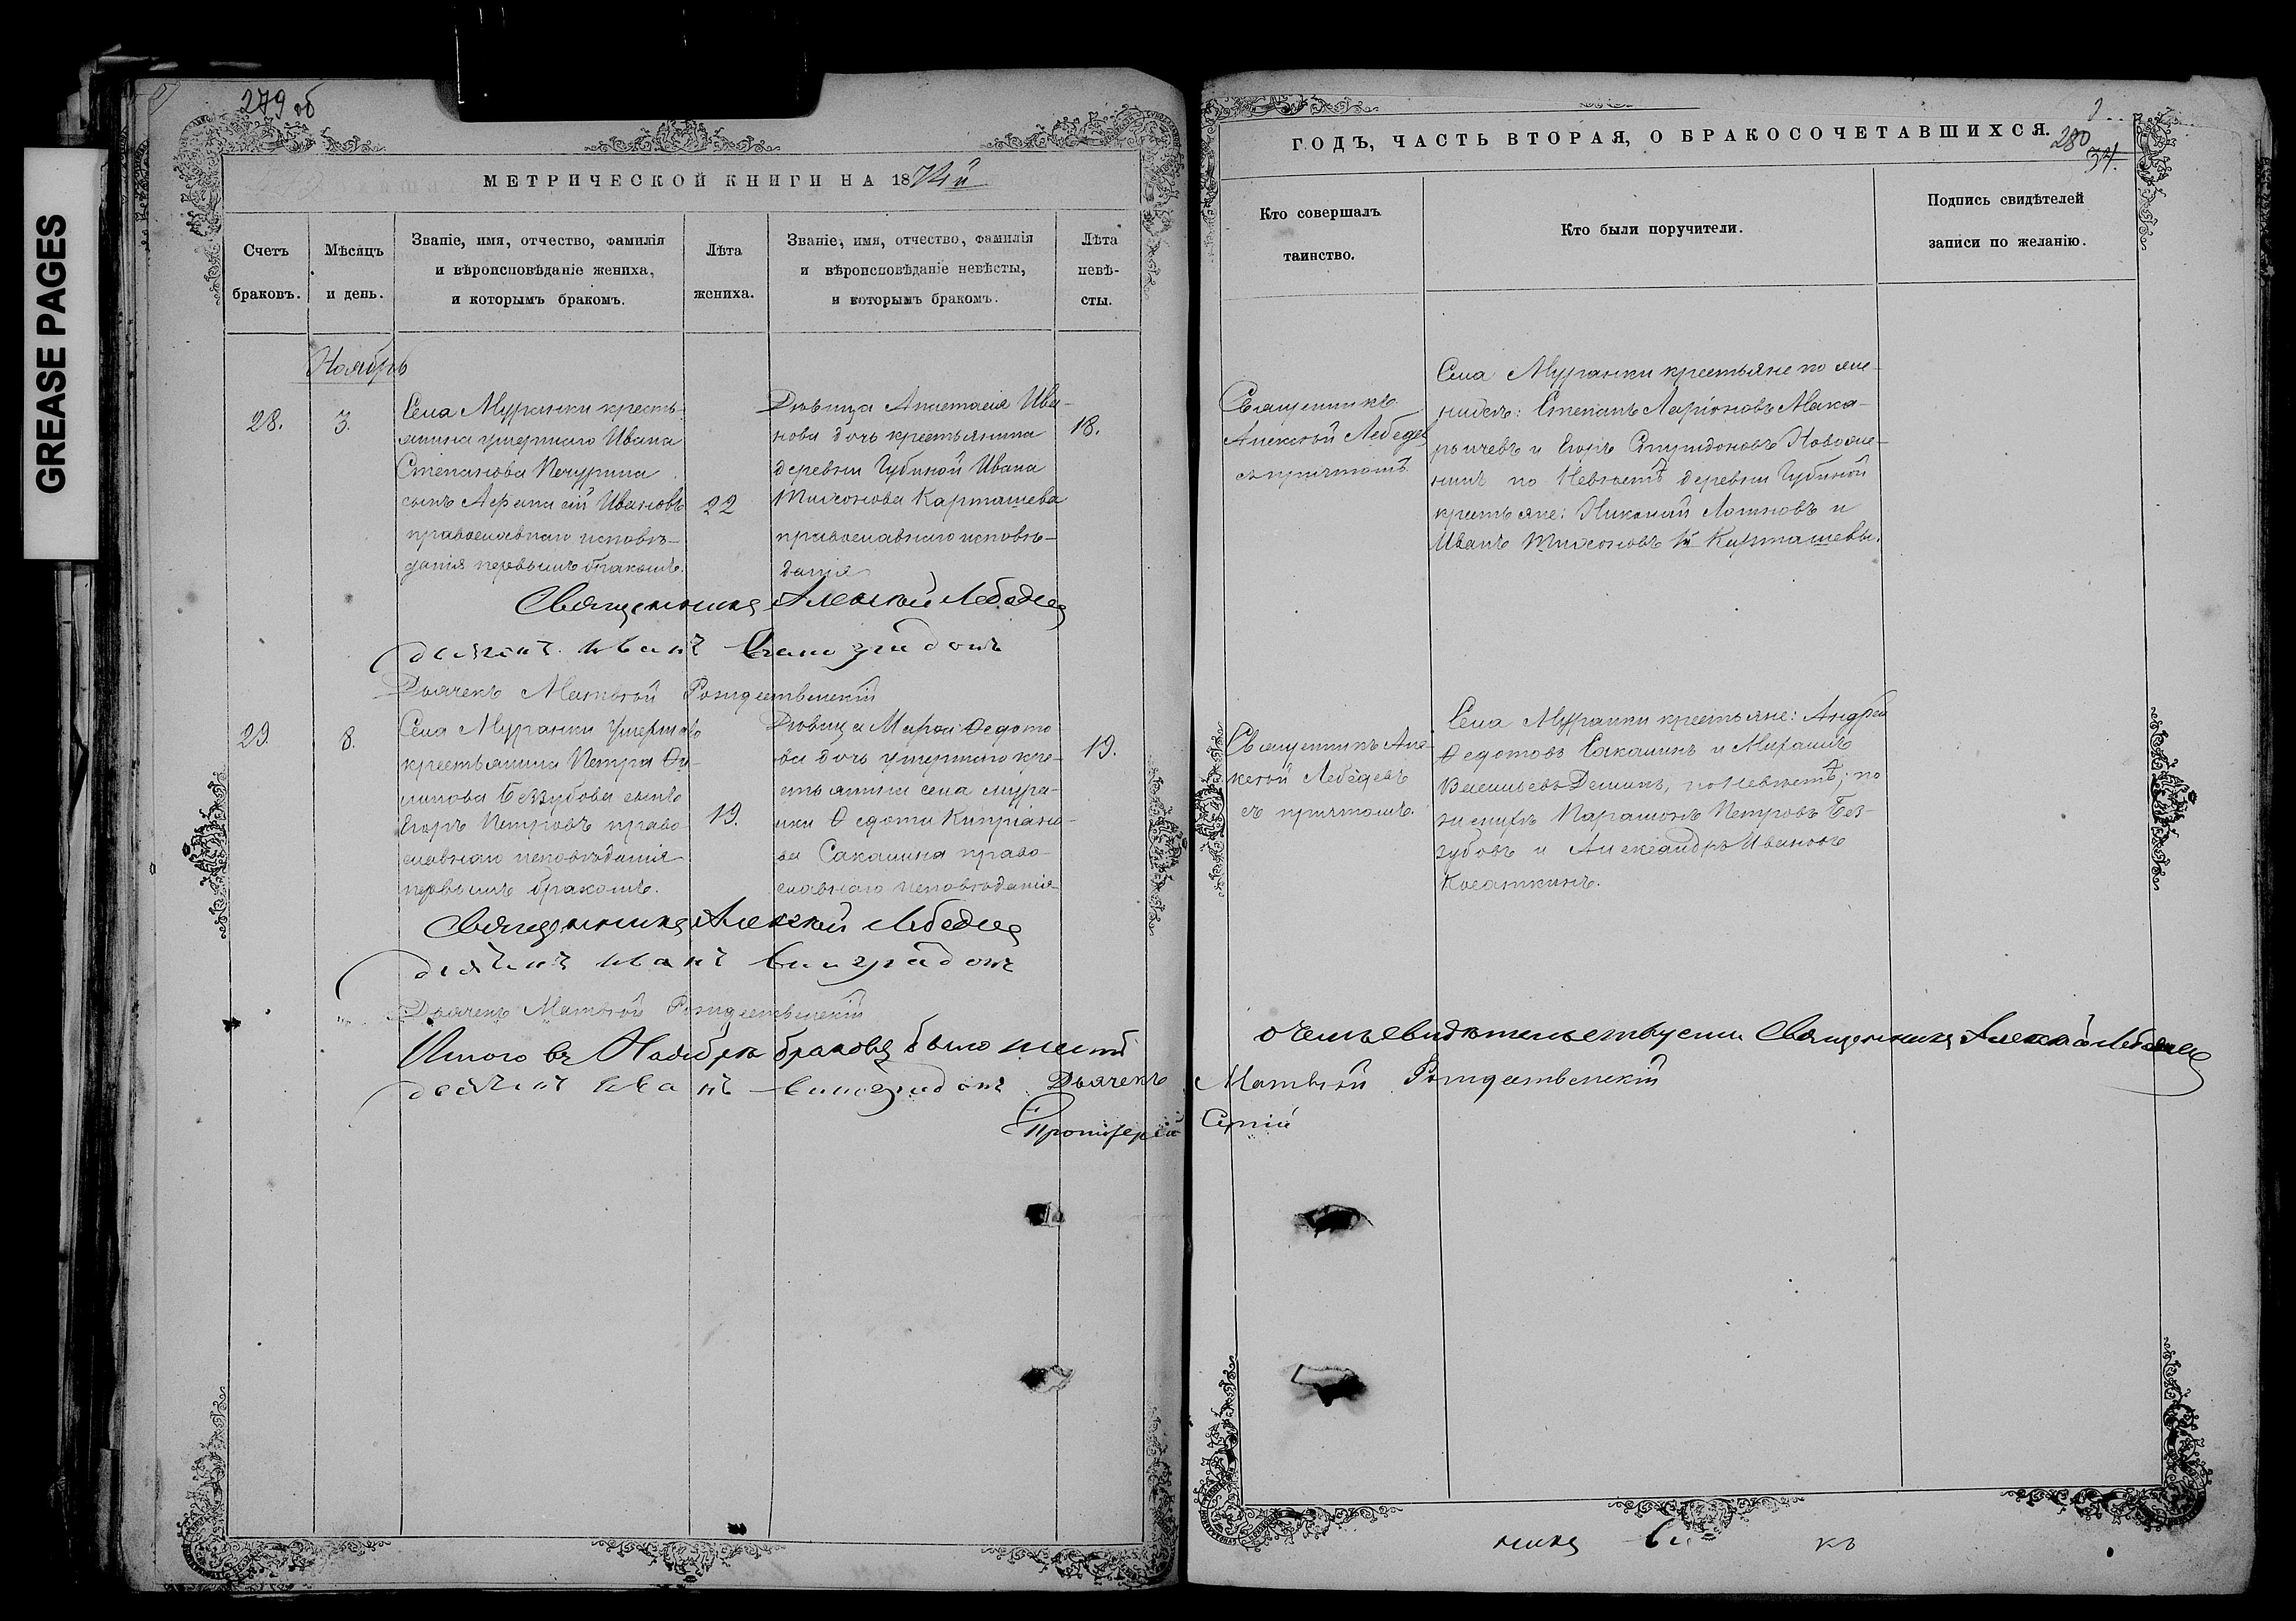 GREASE PAGES
279 об
МЕТРИЧЕСКОЙ КНИГИ НА 1874 й
Счетъ браковъ.
Мѣсяцъ и день.
Званіе, имя, отчество, фамилія
и вѣроисповѣданіе жениха,
и которымъ бракомъ.
Лѣта жениха.
Званіе, имя, отчество, фамилія
и вѣроисповѣданіе невѣсты,
и которымъ бракомъ.
Лѣта невѣ-
сты.
Ноябрь
28.
3.
Села Муранки кресть-
янина умершаго Ивана
Степанова Печурина
сынъ Афанасій Ивановъ
православнаго исповѣ-
данія первымъ бракомъ.
22
Дѣвица Анастасія Ива-
нова дочь крестьянина
деревни Губиной Ивана
Тихонова Карташева
православнаго исповѣ-
данія
18.
Священникъ Алексѣй Лебедев
діаконъ Иванъ Виноградовъ
Дьячекъ Матвѣй Рождественскій
29.
8.
Села Муранки умершаго
крестьянина Петра
Беззубова сынъ
Егоръ Петровъ право-
славнаго исповѣданія
первымъ бракомъ.
19.
Дѣвица Марѳа Ѳедото-
ва дочь умершаго кре-
стьянина села Мура-
нки Ѳедота Кипріано-
ва Сакашина право-
славнаго исповѣданія
19.
Священникъ Алексѣй Лебедев
діаконъ Иванъ Виноградовъ
Дьячекъ Матвѣй Рождественскій
Итого въ Ноябрѣ браковъ было шесть
діаконъ Иванъ Виноградовъ Дьячекъ
Протоіерей
ГОДЪ, ЧАСТЬ ВТОРАЯ, О БРАКОСОЧЕТАВШИХСЯ.
280
34.
Кто совершалъ
таинство.
Кто были поручители.
Подпись свидѣтелей
записи по желанію.
Священникъ
Алексѣй Лебедев
съ причтомъ.
Села Муранки крестьяне по же-
нихѣ: Степанъ Ларіоновъ Мака-
рычевъ и Егоръ Спиридоновъ Новоже-
нинъ по Невѣстѣ деревни Губиной
крестьяне: Николай Логиновъ и
Иванъ Тихоновъ Карташевы.
Священникъ Але-
ксѣй Лебедевъ
съ причтомъ.
Села Муранки крестьяне: Андрей
Ѳедотовъ Сакашинъ и Михаилъ
Васильевъ Деминъ, по Невѣстѣ; по
женихѣ Парамонъ Петровъ Без-
зубовъ и Александръ Ивановъ
Касаткинъ.
о чемъ свидѣтельствуемъ Священникъ Алексѣй Лебедев
Матвѣй Рождественскій
Сергій
никъ
къ